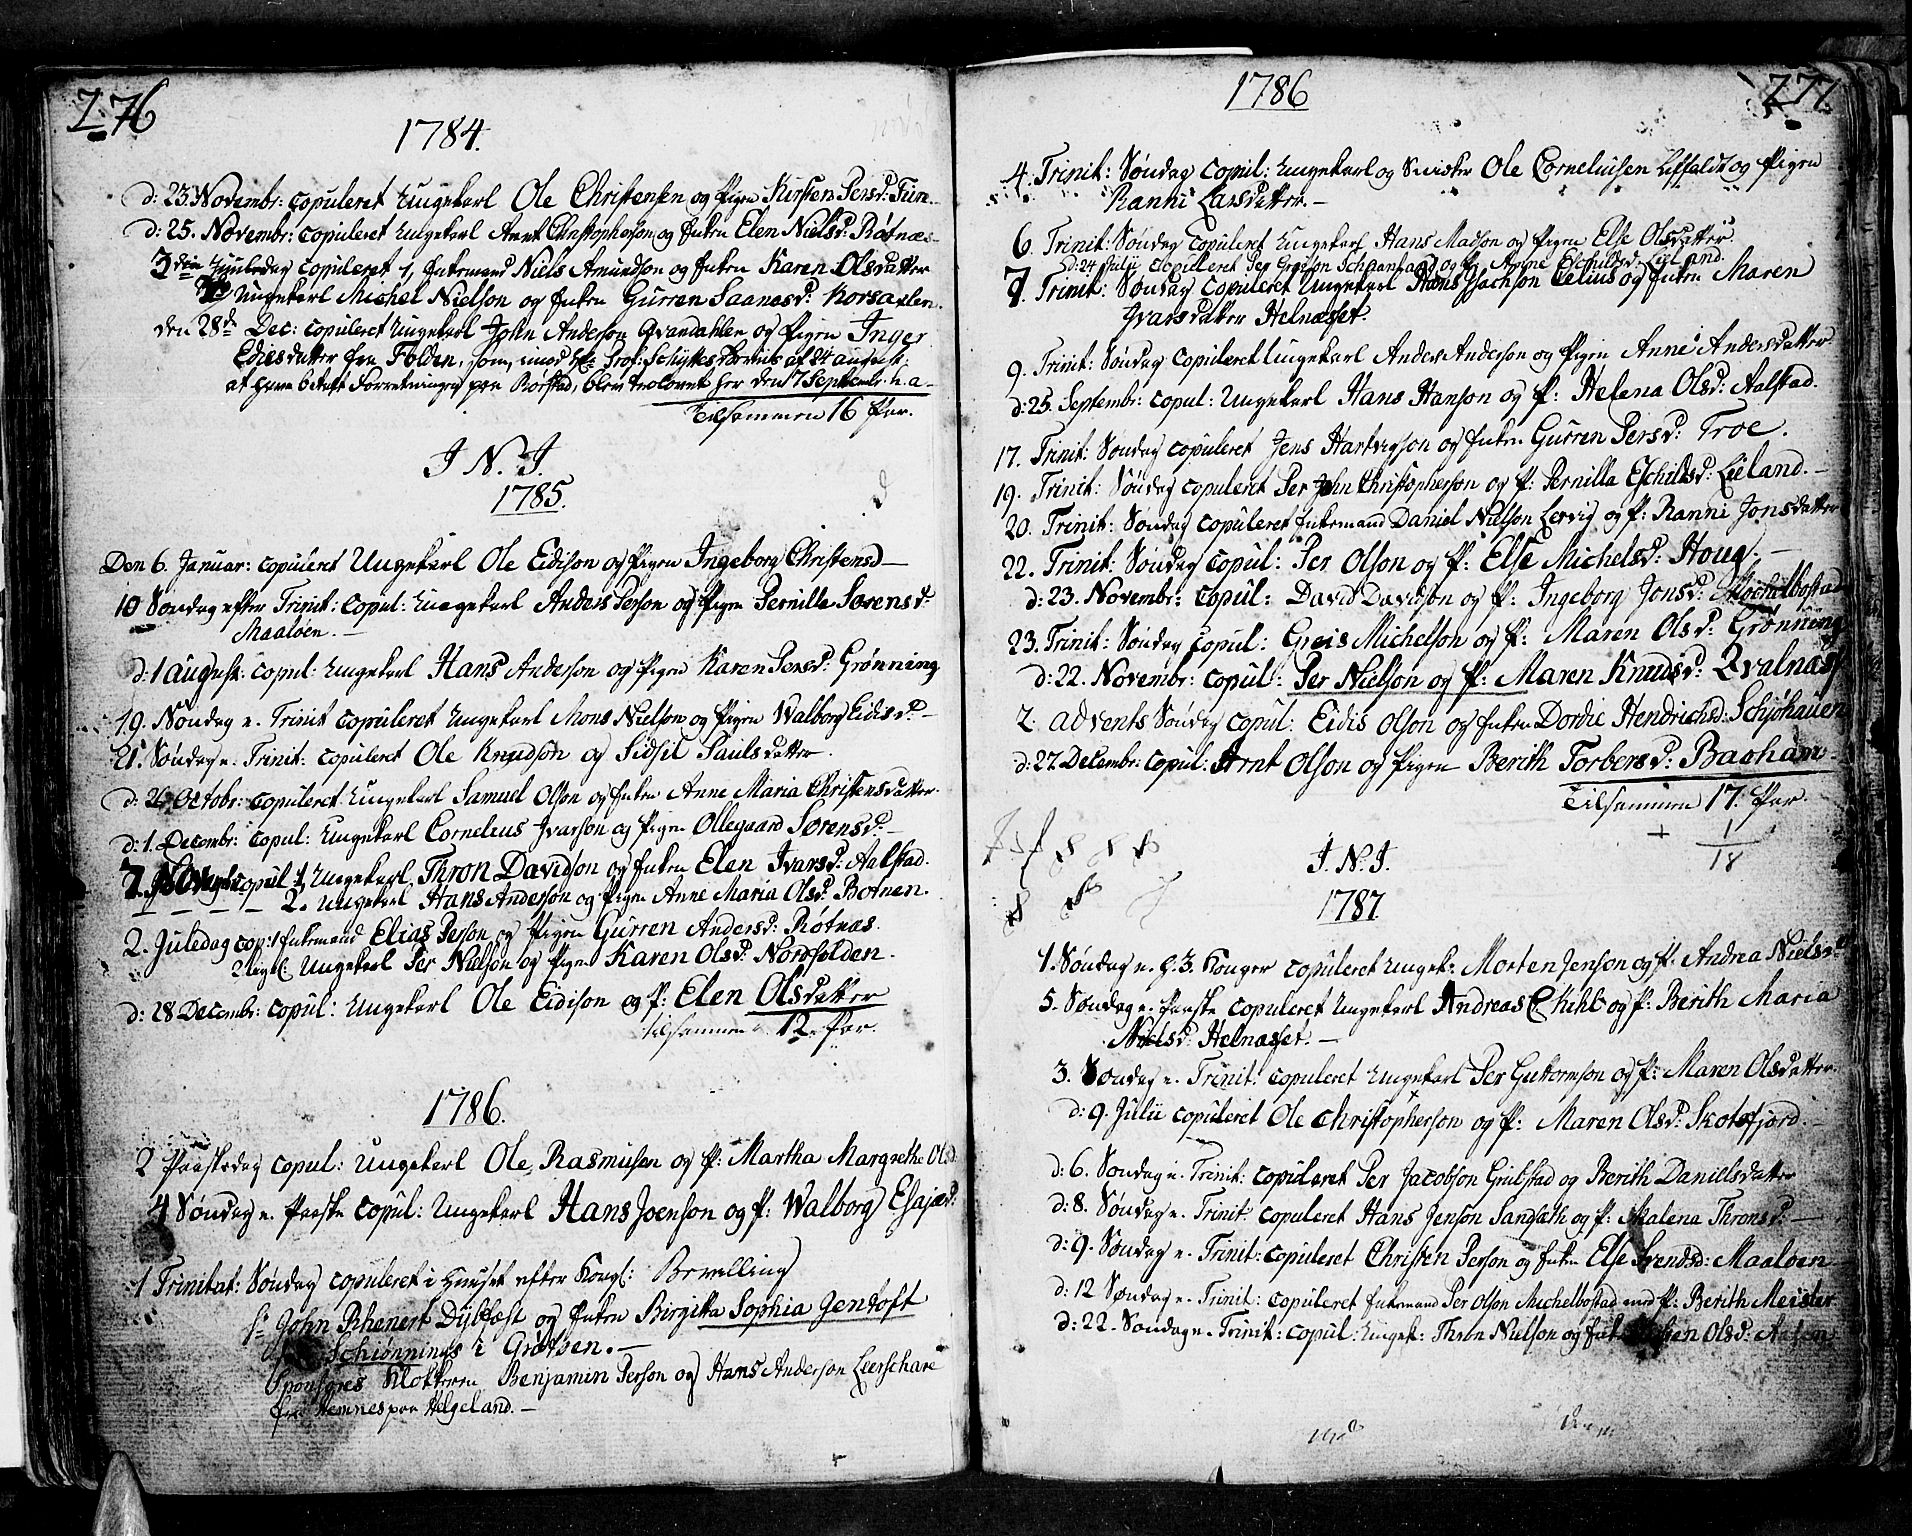 276
1784.
d: 23. Novembr: copuleret Ungekarl Ole Christensen og Pigen Kirsten Persd:
d: 25. Novembr: copuleret Ungekarl Arnt Christopherson og Enken Elen Nielsd: Røtnæs
3die Juuledag copuleret 1, Enkemand Niels Amundson og Enken Karen Olsdatter
Ungekarl Michel Nielson og Enken Gurren Saanesd:
den 28de Dec: copuleret Ungekarl John Anderson Qvandahlen og Pigen Inger
Edisdatter fra Folden, som, imod Hr Prof: Schyttes af 24 august:
at have betalt Forretningen paa Rorstad, blev trolovet her den 7 Septembr. h. a.
Tilsammen 16 Par.
I. N. J.
1785.
Den 6. Januar: copuleret Ungekarl Ole Edison og Pigen Ingeborg Christensd
10 Søndag efter Trinit: Copul: Ungekarl Anders Person og Pigen Pernille Sørensd:
Maaløen.
d: 1 august: copul: Ungekarl Hans Anderson og Pigen Karen Persd: Grønning
19. Søndag e. Trinit copuleret Ungekarl Mons Nielson og Pigen Walborg Eidisd:
21. Søndag e. Trinit: copuleret Ole Knudsøn og Sidsil Paulsdatter.
d: 20 Octobr: copuleret Ungekarl Samuel Olson og Enken Anne Maria Christensdatter.
d: 1. Decembr: copul: Ungekarl Cornelius Ivarson og Pigen Ollegaard Sørensd:
copul 1 Ungekarl Thron Davidson og Enken Elen Ivarsd: Aalstad.
2. Ungekarl Hans Anderson og Pigen Anne Maria Olsd: Botnen.
2. Juledag cop: 1 Enkemand Elias Person og Pigen Gurren Andersd: Røtnæs.
2 Ungekarl Per Nielson og Pigen Karen Olsd: Nordfolden.
d: 28 Decembr: copul: Ungekarl Ole Eidison og P: Elen Olsdatter
tilsammen 12. Par.
1786.
2 Paaskedag copul: Ungekarl Ole Rasmusen og P: Martha Margrethe Olsd.
4 Søndag e. Paaske copul: Ungekarl Hans Joenson og P: Walborg Esajæd:
1 Trinitat: Søndag copuleret i Huuset efter Kongl: Bevilling
Sr John Rhenert Dyblæst og Enken Birgitta Sophia Jentoft
Schiønnings i Grøtøen.
Sponsores Klokkeren Benjamin Person og Hans Anderson Leerschare
fra Hemnes paa Helgeland.
277.
1786
4. Trinit: Søndag copul: Ungekarl og Snedker Ole Corneliusen og Pigen
Ranni Larsdatter.
6. Trinit: Søndag copuleret Ungekarl Hans Madson og Pigen Else Olsdatter.
d: 24 Julii copulleret Per og P: Anne Eschildsd: Leeland.
7. Trinit: Søndag copuleret Ungekarl Hans Celius og Enken Maren
Ivarsdatter Helnæset.
9. Trinit: Søndag copuleret Ungekarl Anders Anderson og Pigen Anne Andersdatter
d: 25. Septembr: copul: Ungekarl Hans Hanson og P: Helena Olsd: Aalstad.
17. Trinit: Søndag copuleret Jens Hartvigson og Enken Gurren Persd: Troe.
19. Trinit: Søndag copuleret Per John Christopherson og P: Pernilla Eschildsd: Leeland.
20. Trinit: Søndag copuleret Enkemand Daniel Nielson Lervig og P: Ranni Jonsdatter
22. Trinit: Søndag copul: Per Olson og P: Else Michelsd: Houg.
d: 23. Novembr: copul: David Davidson og P: Ingeborg Jonsd: Michelbostad
23. Trinit: Søndag copul: Greis Michelson og P: Maren Olsd: Grønning
d: 22. Novembr: copul: Per Nielson og P: Maren Knudsd: Qvalnæs
2. advents Søndag copul: Eidis Olson og Enken Dordie Hendrichsd: Schjøhauen
d: 27. Decembr: copul: Arnt Olson og Pigen Berith Torbersd: Baaham
Tilsammen 17. Par.
+ 1
18
I. N. J.
1787.
1. Søndag e. H. 3. Konger copuleret Ungek: Morten Jenson og P: Andrea Nielsd:
5. Søndag e. Paaske copuleret Ungekarl Andreas og P: Berith Maria
Nielsd: Helnæset.
3. Søndag e. Trinit: copuleret Ungekarl Per Guttormson og P: Maren Olsdatter.
d: 9. Julii copuleret Ole Christopherson og P: Maren Olsd: Skotsfjord.
d: 6. Søndag e. Trinit: copuleret Per Jacobson Grulstad og Berith Danielsdatter
d: 8. Søndag e. Trinit: copuleret Hans Jenson Sandsæth og P: Malena Thronsd:
d: 9. Søndag e. Trinit: copuleret Christen Person og Enken Else Svendsd: Maaløen
d: 12 Søndag e. Trinit: copuleret Enkemand Per Olson Michelbostad med P: Berith Meister
d: 22. Søndag e. Trinit: copul: Ungek: Thron Nielson og Enk: Olsd: